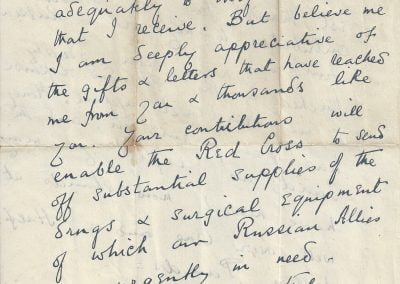 adequately to
that I receive. But believe me
I am deeply appreciative of
the gifts & letters that have reached
me from you & thousands like
you. Your contributions will
enable the Red Cross to send
off substantial supplies of the
drugs & surgical equipment
of which our Russian Allies
urgently in need.